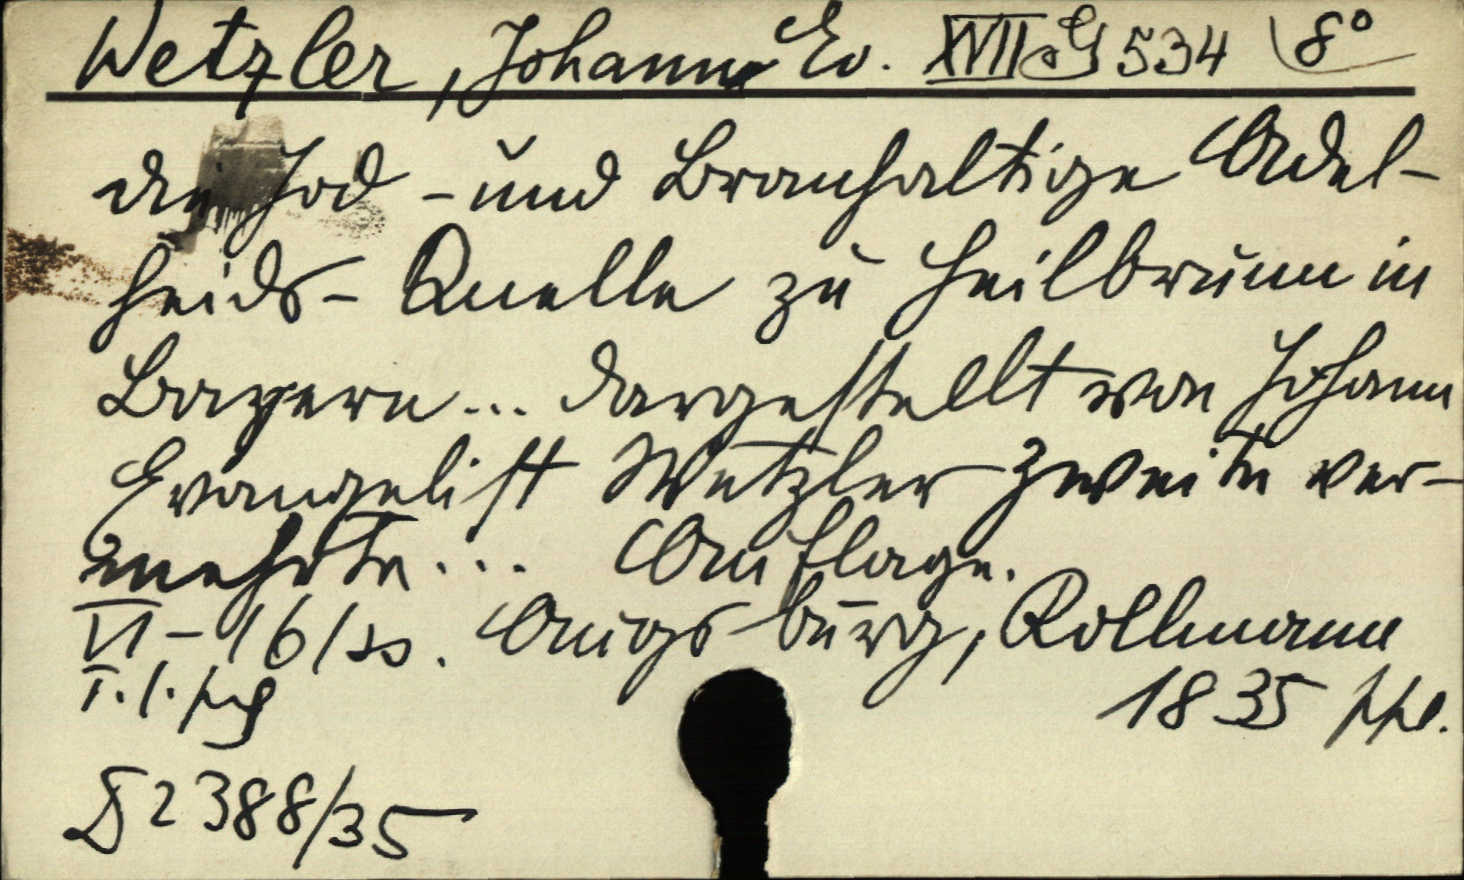 Wetzler, Johann Ev. XVII G 534 8°
die Jod - und Bromhaltige Adel-
heids - Quelle zu Heilbrunn in
Bayern ... dargestellt von Johann
Evangelist Wetzler zweite ver-
mehrte ... Auflage.
VI - 16/ss. Augsburg, Kollmann
1835 ppl.
D 2388/35